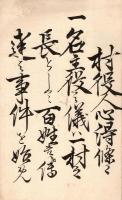 村役人心得條々
一名主役之儀ハ一村之
長として百姓を
速之事件を始免